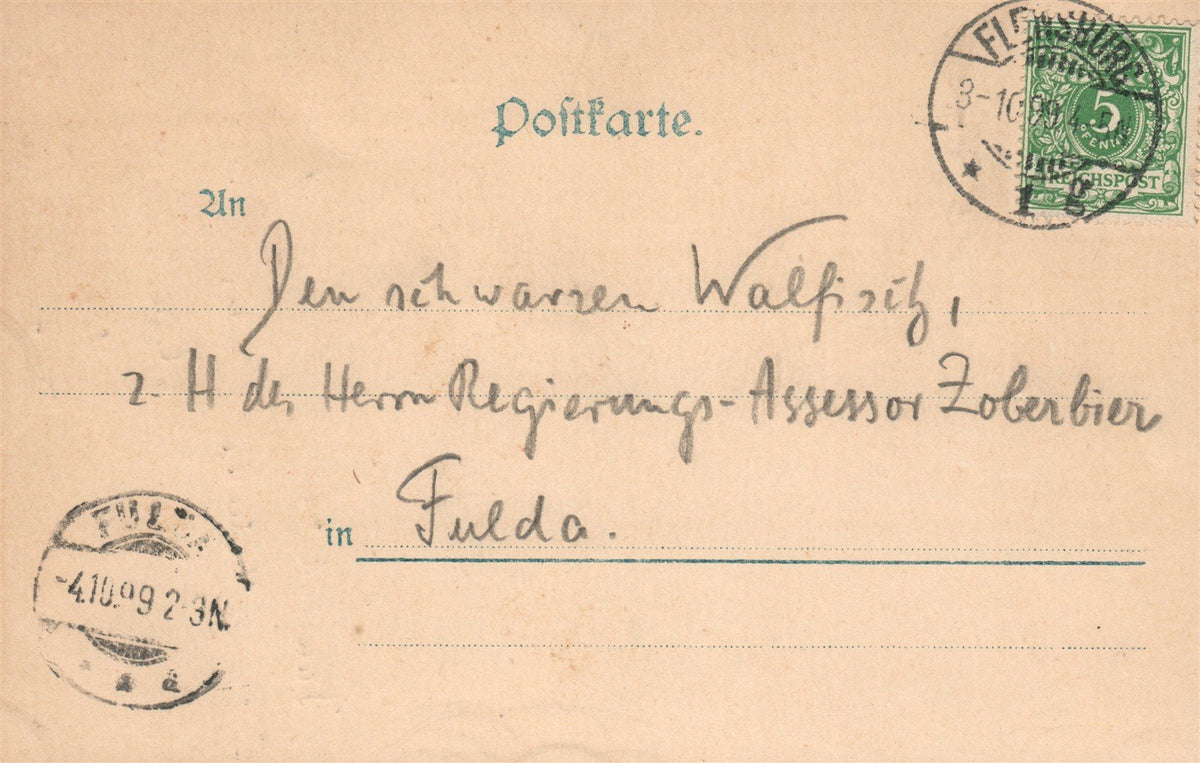 Postkarte.
FLENSBURG
3-10.99.4-5N
* 1 g
5
PFENNIG
REICHSPOST
An
Den schwarzen Walfisch,
z. H des Herrn Regierungs-Assessor Zoberbier
in Fulda.
FULDA
-4.10.99 2-3N.
a a